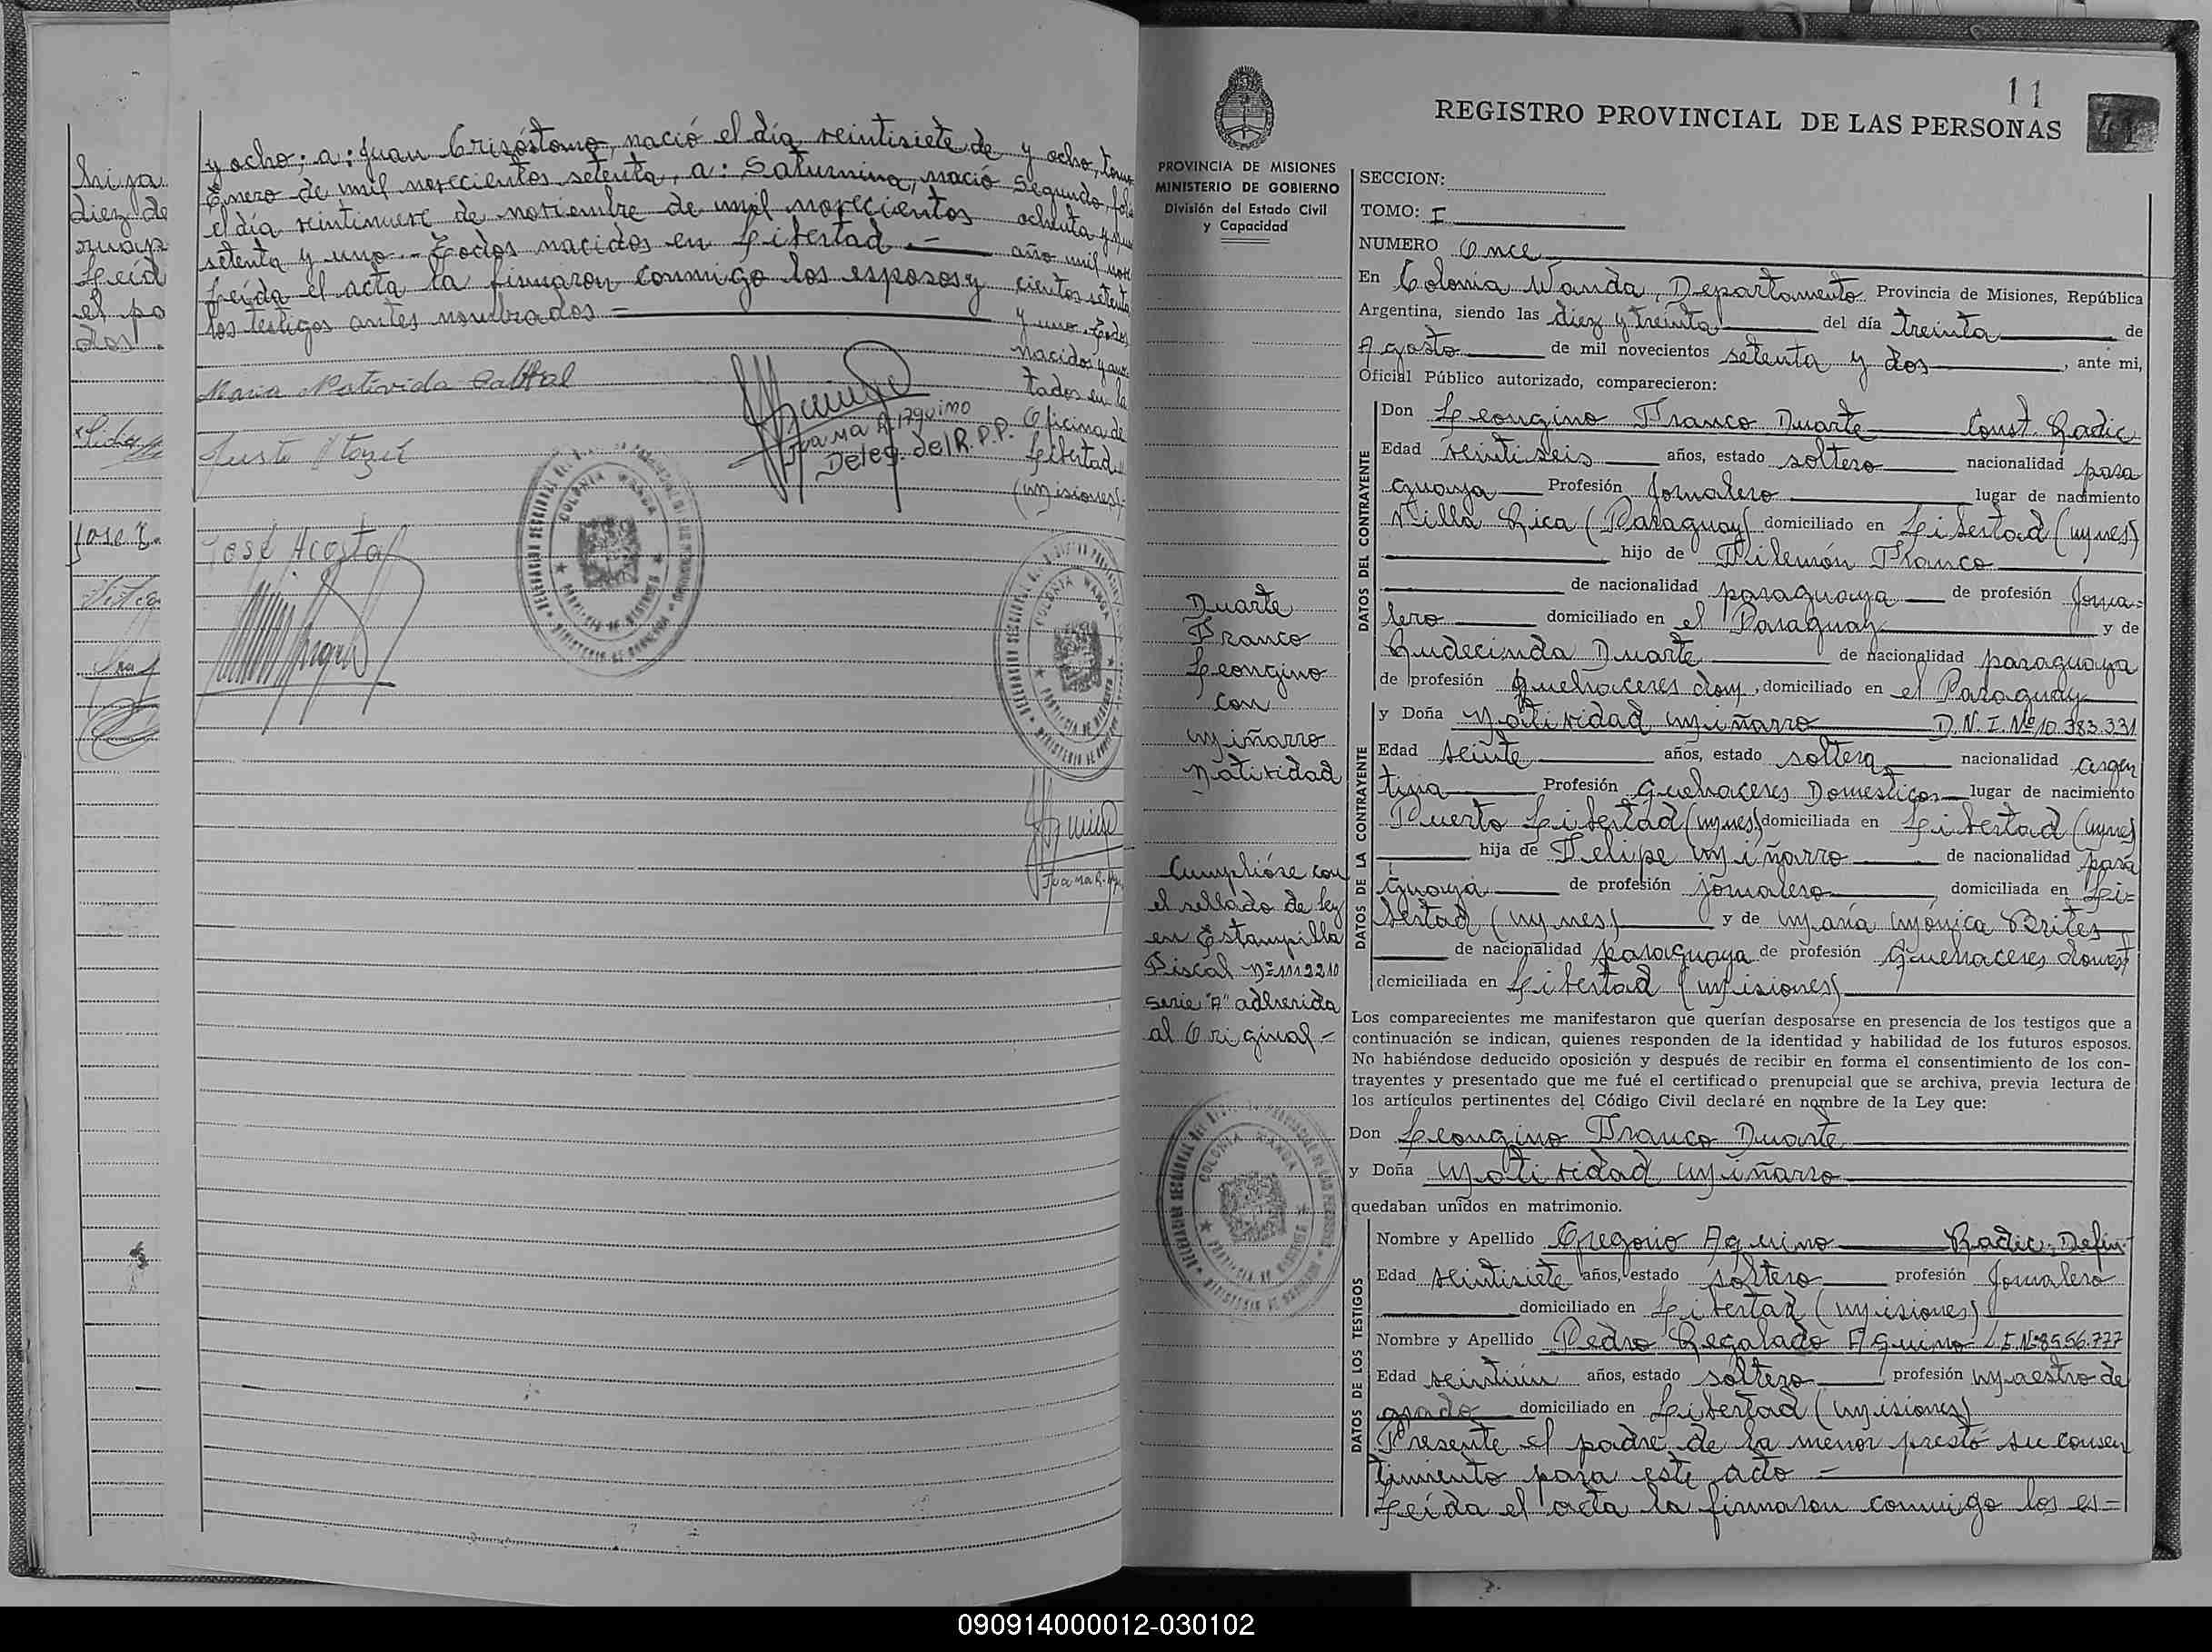 hija
diez de
Leíd
el pa
dos
y ocho; a: Juan Crisóstomo, nació el día veintisiete de
Enero de mil novecientos setenta, a: Saturnina, nació
el día veintinueve de noviembre de mil novecientos
setenta y uno.- Todos nacidos en Libertad —
Leída el acta la firmaron conmigo los esposos y
los testigos antes nombrados =
y ocho, tomo
Segundo, folio
ochenta y
año mil nove
cientos setenta
y uno. Todos
nacidos y ano
tados en la
Oficina de
Libertad
(Misiones)-
Maria Natívida Cabral
Justo
José Acosta
Juana A. Aquino
Deleg. del R.P.P.
COLONIA WANDA
COLONIA WANDA
Jose
11
REGISTRO PROVINCIAL DE LAS PERSONAS
41
PROVINCIA DE MISIONES
MINISTERIO DE GOBIERNO
División del Estado Civil
y Capacidad
SECCION:
TOMO: I
NUMERO Once
En Colonia Wanda, Departamento Provincia de Misiones, República
Argentina, siendo las diez y treinta del día treinta de
Agosto de mil novecientos setenta y dos, ante mi,
Oficial Público autorizado, comparecieron:
DATOS DEL CONTRAYENTE
Don Leongino Franco Duarte Const. Radic
Edad veintiseis años, estado soltero nacionalidad para
guaya Profesión Jornalero lugar de nacimiento
Villa Rica (Paraguay) domiciliado en Libertad (Mnes)
hijo de Filemón Franco
de nacionalidad paraguaya de profesión Jorna=
lero domiciliado en el Paraguay y de
Gudecinda Duarte de nacionalidad paraguaya
de profesión Quehaceres dom, domiciliado en el Paraguay
DATOS DE LA CONTRAYENTE
y Doña Natividad Miñarro D.N.I. Nº 10.383.331
Edad veinte años, estado soltera nacionalidad argen
tina Profesión Quehaceres Domesticos lugar de nacimiento
Puerto Libertad (Mnes) domiciliada en Libertad (Mnes)
hija de Felipe Miñarro de nacionalidad para
guaya de profesión jornalero, domiciliada en Li=
bertad (Mnes) y de María Mónica Brites
de nacionalidad paraguaya de profesión Quehaceres domest
domiciliada en Libertad (Misiones)
Los comparecientes me manifestaron que querían desposarse en presencia de los testigos que a
continuación se indican, quienes responden de la identidad y habilidad de los futuros esposos.
No habiéndose deducido oposición y después de recibir en forma el consentimiento de los con-
trayentes y presentado que me fué el certificado prenupcial que se archiva, previa lectura de
los artículos pertinentes del Código Civil declaré en nombre de la Ley que:
Don Leongino Franco Duarte
y Doña Natividad Miñarro
quedaban unidos en matrimonio.
DATOS DE LOS TESTIGOS
Nombre y Apellido Gregorio Aquino Radic. Defin
Edad veintisiete años, estado soltero profesión Jornalero
domiciliado en Libertad (Misiones)
Nombre y Apellido Pedro Regalado Aquino L.E. Nº 8556.777
Edad veintiún años, estado soltero profesión Maestro de
grado domiciliado en Libertad (Misiones)
Presente el padre de la menor prestó su consen
timiento para este acto =
Leída el acta la firmaron conmigo los es=
Duarte
Franco
Leongino
con
Miñarro
Natividad
Cumplióse con
el sellado de Ley
en Estampilla
Fiscal Nº 1112210
Serie "A" adherida
al Original =
COLONIA WANDA
090914000012-030102